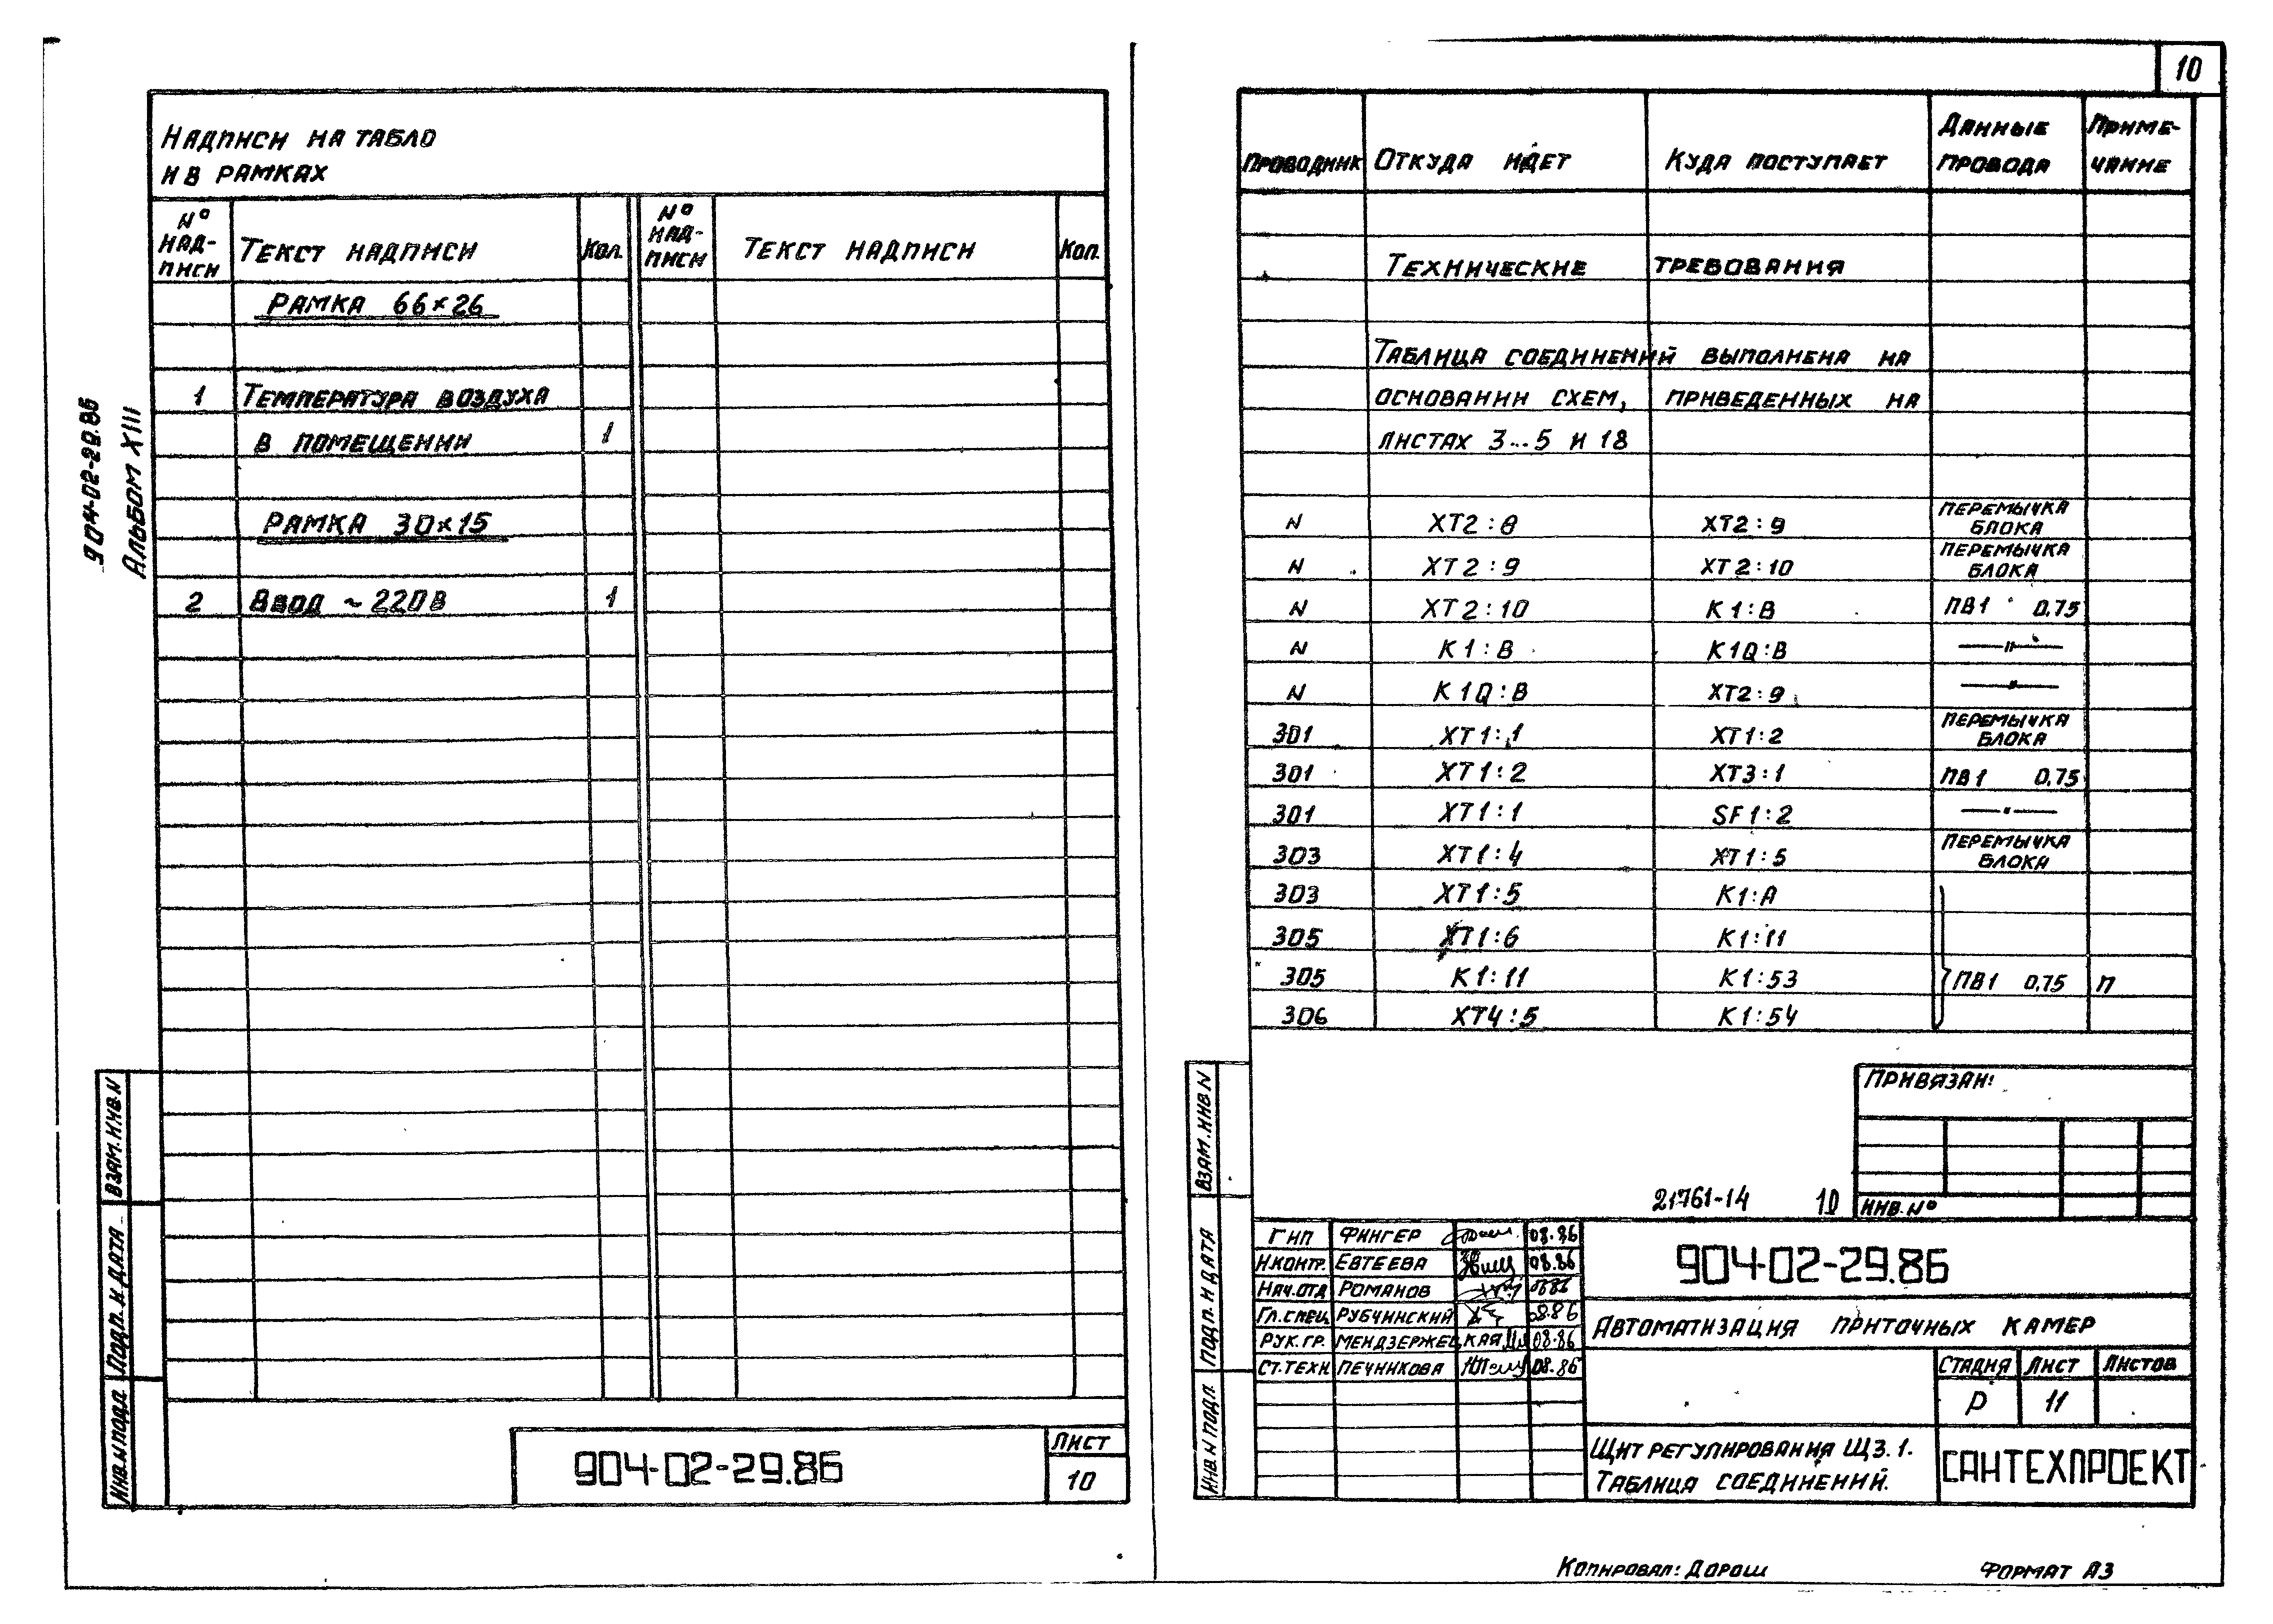 10
904-02-29.86
Альбом XIII
Надписи на табло
и в рамках
№ надписи Текст надписи Кол. № надписи Текст надписи Кол.
Рамка 66×26
1 Температура воздуха
в помещении 1
Рамка 30×15
2 Ввод ~220В 1
Взам. инв. N
Подп. и дата
Инв. N подл
904-02-29.86
Лист
10
Проводник Откуда идет Куда поступает Данные провода Примечание
Технические требования
Таблица соединений выполнена на
основании схем, приведенных на
листах 3...5 и 18
N XT2:8 XT2:9 перемычка блока
N XT2:9 XT2:10 перемычка блока
N XT2:10 K1:B ПВ1 0,75
N K1:B K1Q:B —"—
N K1Q:B XT2:9 —"—
301 XT1:1 XT1:2 перемычка блока
301 XT1:2 XT3:1 ПВ1 0,75
301 XT1:1 SF1:2 —"—
303 XT1:4 XT1:5 перемычка блока
303 XT1:5 K1:A
305 XT1:6 K1:11
305 K1:11 K1:53 ПВ1 0,75 П
306 XT4:5 K1:54
Взам. инв N
Подп. и дата
Инв. N подл.
Привязан:
Инв. №
21761-14 10
ГИП Фингер 08.86
Н.контр. Евтеева 08.86
Нач.отд Романов 0886
Гл.спец Рубчинский 08.86
Рук.гр. Мендзержецкая 08.86
Ст.техн. Печникова 08.86
904-02-29.86
Автоматизация приточных камер
Стадия Лист Листов
Р 11
Щит регулирования Щ3.1.
Таблица соединений.
САНТЕХПРОЕКТ
Копировал: Дораш
Формат А3